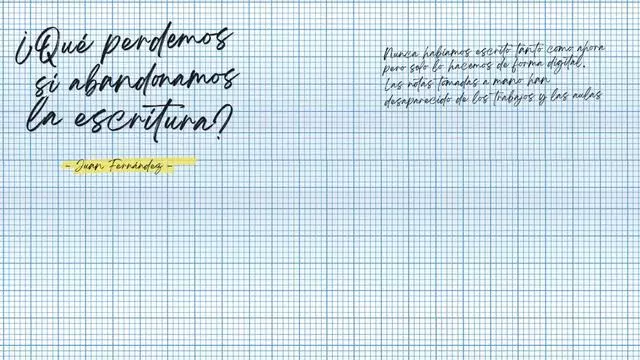 ¿Qué perdemos
si abandonamos
la escritura?
- Juan Fernández -
Nunca habíamos escrito tanto como ahora
pero solo lo hacemos de forma digital.
Las notas tomadas a mano han
desaparecido de los trabajos y las aulas